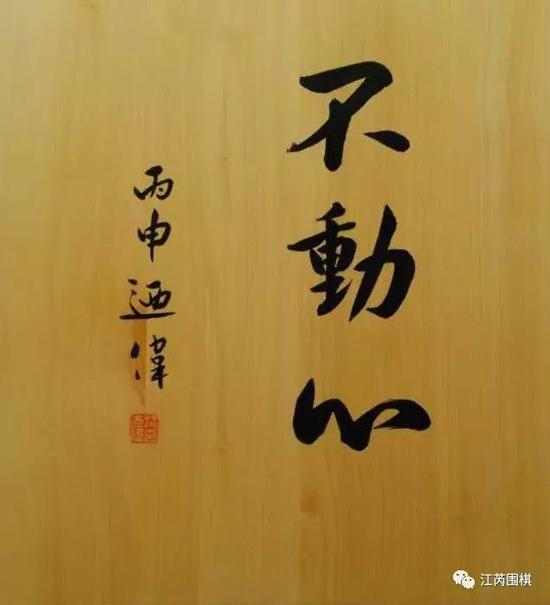 不動心
丙申廼偉
江芮围棋